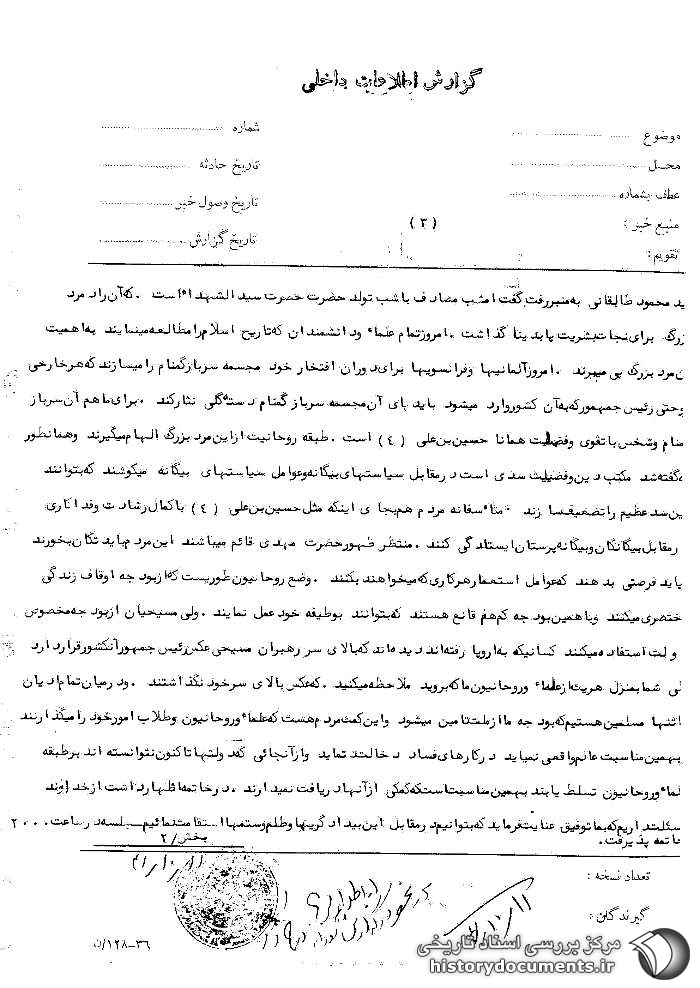 گزارش اطلاعات داخلی
شماره
موضوع
تاریخ حادثه
محل
تاریخ وصول خبر
عطف بشماره
منبع خبر : (۳)
تاریخ گزارش
تقویم :
ید محمود طالقانی به منبر رفت گفت امشب مصادف با شب تولد حضرت خضرت سید الشهدا است . که آن راد مرد
زرگ برای نجات بشریت پا بدنیا گذاشت . امروز تمام علما ودانشمندان که تاریخ اسلام را مطالعه مینمایند به اهمیت
ن مرد بزرگ پی میبرند . امروز آلمانیها وفرانسویها برای دوران افتخار خود مجسمه سرباز گمنام را میسازند که هر خارجی
وحتی رئیس جمهور که به آن کشور وارد میشود باید پای آن مجسمه سرباز گمنام دسته گلی نثار کند . برای ما هم آن سرباز
منام وشخص با تقوی وفضلیت همانا حسین بن علی (٤) است . طبقه روحانیت از این مرد بزرگ الهام میگیرند وهمانطور
ه گفته شد مکتب دین وفضیلت سدی است در مقابل سیاستهای بیگانه وعوامل سیاستهای بیگانه میکوشند که بتوانند
ین سد عظیم را تضعیف سازند متأسفانه مردم هم بجای اینکه مثل حسین بن علی (٤) با کمال رشادت وفداکاری
رمقابل بیگانگان وبیگانه پرستان ایستادگی کنند . منتظر ظهور حضرت مهدی قائم میباشند این مردم باید تکان بخورند
باید فرصتی بدهند که عوامل استعمار هر کاری که میخواهند بکنند . وضع روحانیون طوریست که از بودجه اوقاف زندگی
ختصری میکنند وبا همین بودجه کم هم قانع هستند که بتوانند بوظیفه خود عمل نمایند . ولی مسیحیان از بودجه مخصوص
ولت استفاده میکنند کسانیکه به اروپا رفته اند دیده اند که بالای سر رهبران مسیحی عکس رئیس جمهور آنکشور قرار دارد
لی شما بمنزل هریک از علما وروحانیون ما که بروید ملاحظه میکنید . که عکس بالای سر خود نگذاشتند . ودر میان تمام ادیان
اتنها مسلمین هستیم که بودجه ما از ملت تامین میشود واین کمک مردم هست که علما وروحانیون وطلاب امور خود را میگذارنند
بهمین مناسبت عالم واقعی نمیاید در کارهای فساد دخالت نماید واز آنجائی که دولتها تا کنون نتوانسته اند بر طبقه
لما وروحانیون تسلط یابند بهمین مناسبت است که کمکی از آنها دریافت نمیدارند . در خاتمه اظهار داشت از خداوند
سئلت داریم که بما توفیق عنایت فرماید که بتوانیم در مقابل این بیدادگریها وظلم وستمها استقامت نمائیم جلسه در ساعت ۲۰۰۰
خاتمه پذیرفت .
بخش / ۲
تعداد نسخه :
گیرندگان :
۳۶-۱۲۸/ن
مرکز بررسی اسناد تاریخی
historydocuments.ir